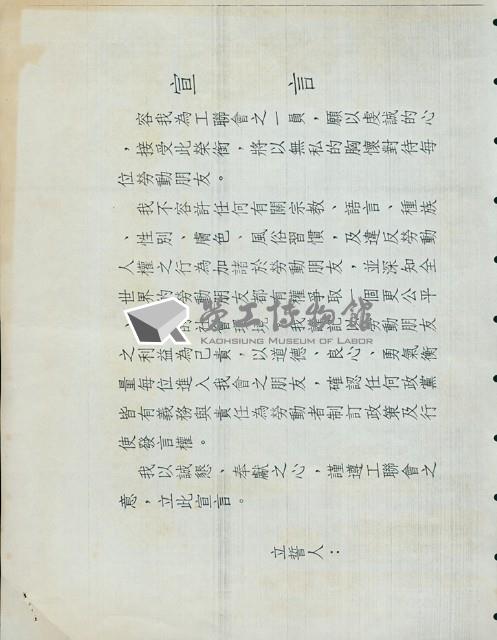 宣言
容我為工聯會之一員，願以虔誠的心
，接受此榮銜，將以無私的胸懷對待每
位勞動朋友。
我不容許任何有關宗教、語言、種族
、性別、膚色、風俗習慣，及違反勞動
人權之行為加諸於勞動朋友，並深知全
世界的勞動朋友都有權爭取一個更公平
、的社會環境。我謹記以勞動朋友
之利益為己責，以道德、良心、勇氣衡
量每位進入我會之朋友，確認任何政黨
皆有義務與責任為勞動者制訂政策及行
使發言權。
我以誠懇、奉獻之心，謹遵工聯會之
意，立此宣言。
立誓人：
勞工博物館
KAOHSIUNG MUSEUM OF LABOR